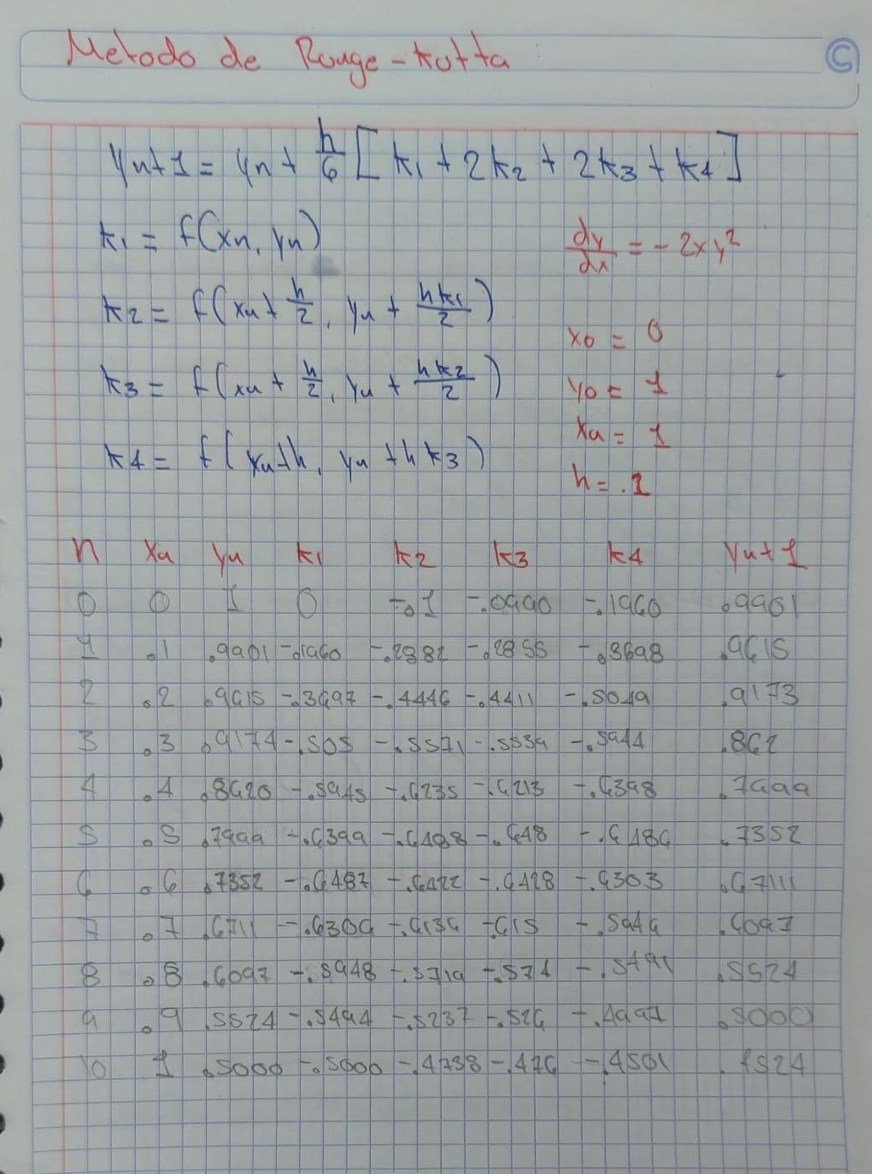 Metodo de Rouge-kutta ©
yn+1 = yn + h/6 [k1 + 2k2 + 2k3 + k4]
k1 = f(xn, yn)
dy/dx = -2xy²
k2 = f(xn + h/2, yn + hk1/2)
x0 = 0
k3 = f(xn + h/2, yn + hk2/2)
y0 = 1
xn = 1
k4 = f(xn+h, yn+hk3)
h = .1
n xn yn k1 k2 k3 k4 yn+1
0 0 1 0 -.1 -.0990 -.1960 .9901
1 .1 .9901 -.1960 -.2882 -.2855 -.3698 .9615
2 .2 .9615 -.3697 -.4446 -.4411 -.5049 .9173
3 .3 .9174 -.505 -.5571 -.5539 -.5944 .862
4 .4 .8620 -.5945 -.6235 -.6213 -.6398 .7999
5 .5 .7999 -.6399 -.6488 -.648 -.6486 .7352
6 .6 .7352 -.6487 -.6422 -.6428 -.6303 .67111
7 .7 .6711 -.6306 -.6136 -.615 -.5946 .6097
8 .8 .6097 -.5948 -.5719 -.574 -.5491 .5524
9 .9 .5524 -.5494 -.5237 -.526 -.4997 .5000
10 1 .5000 -.5000 -.4738 -.476 -.4501 .4524